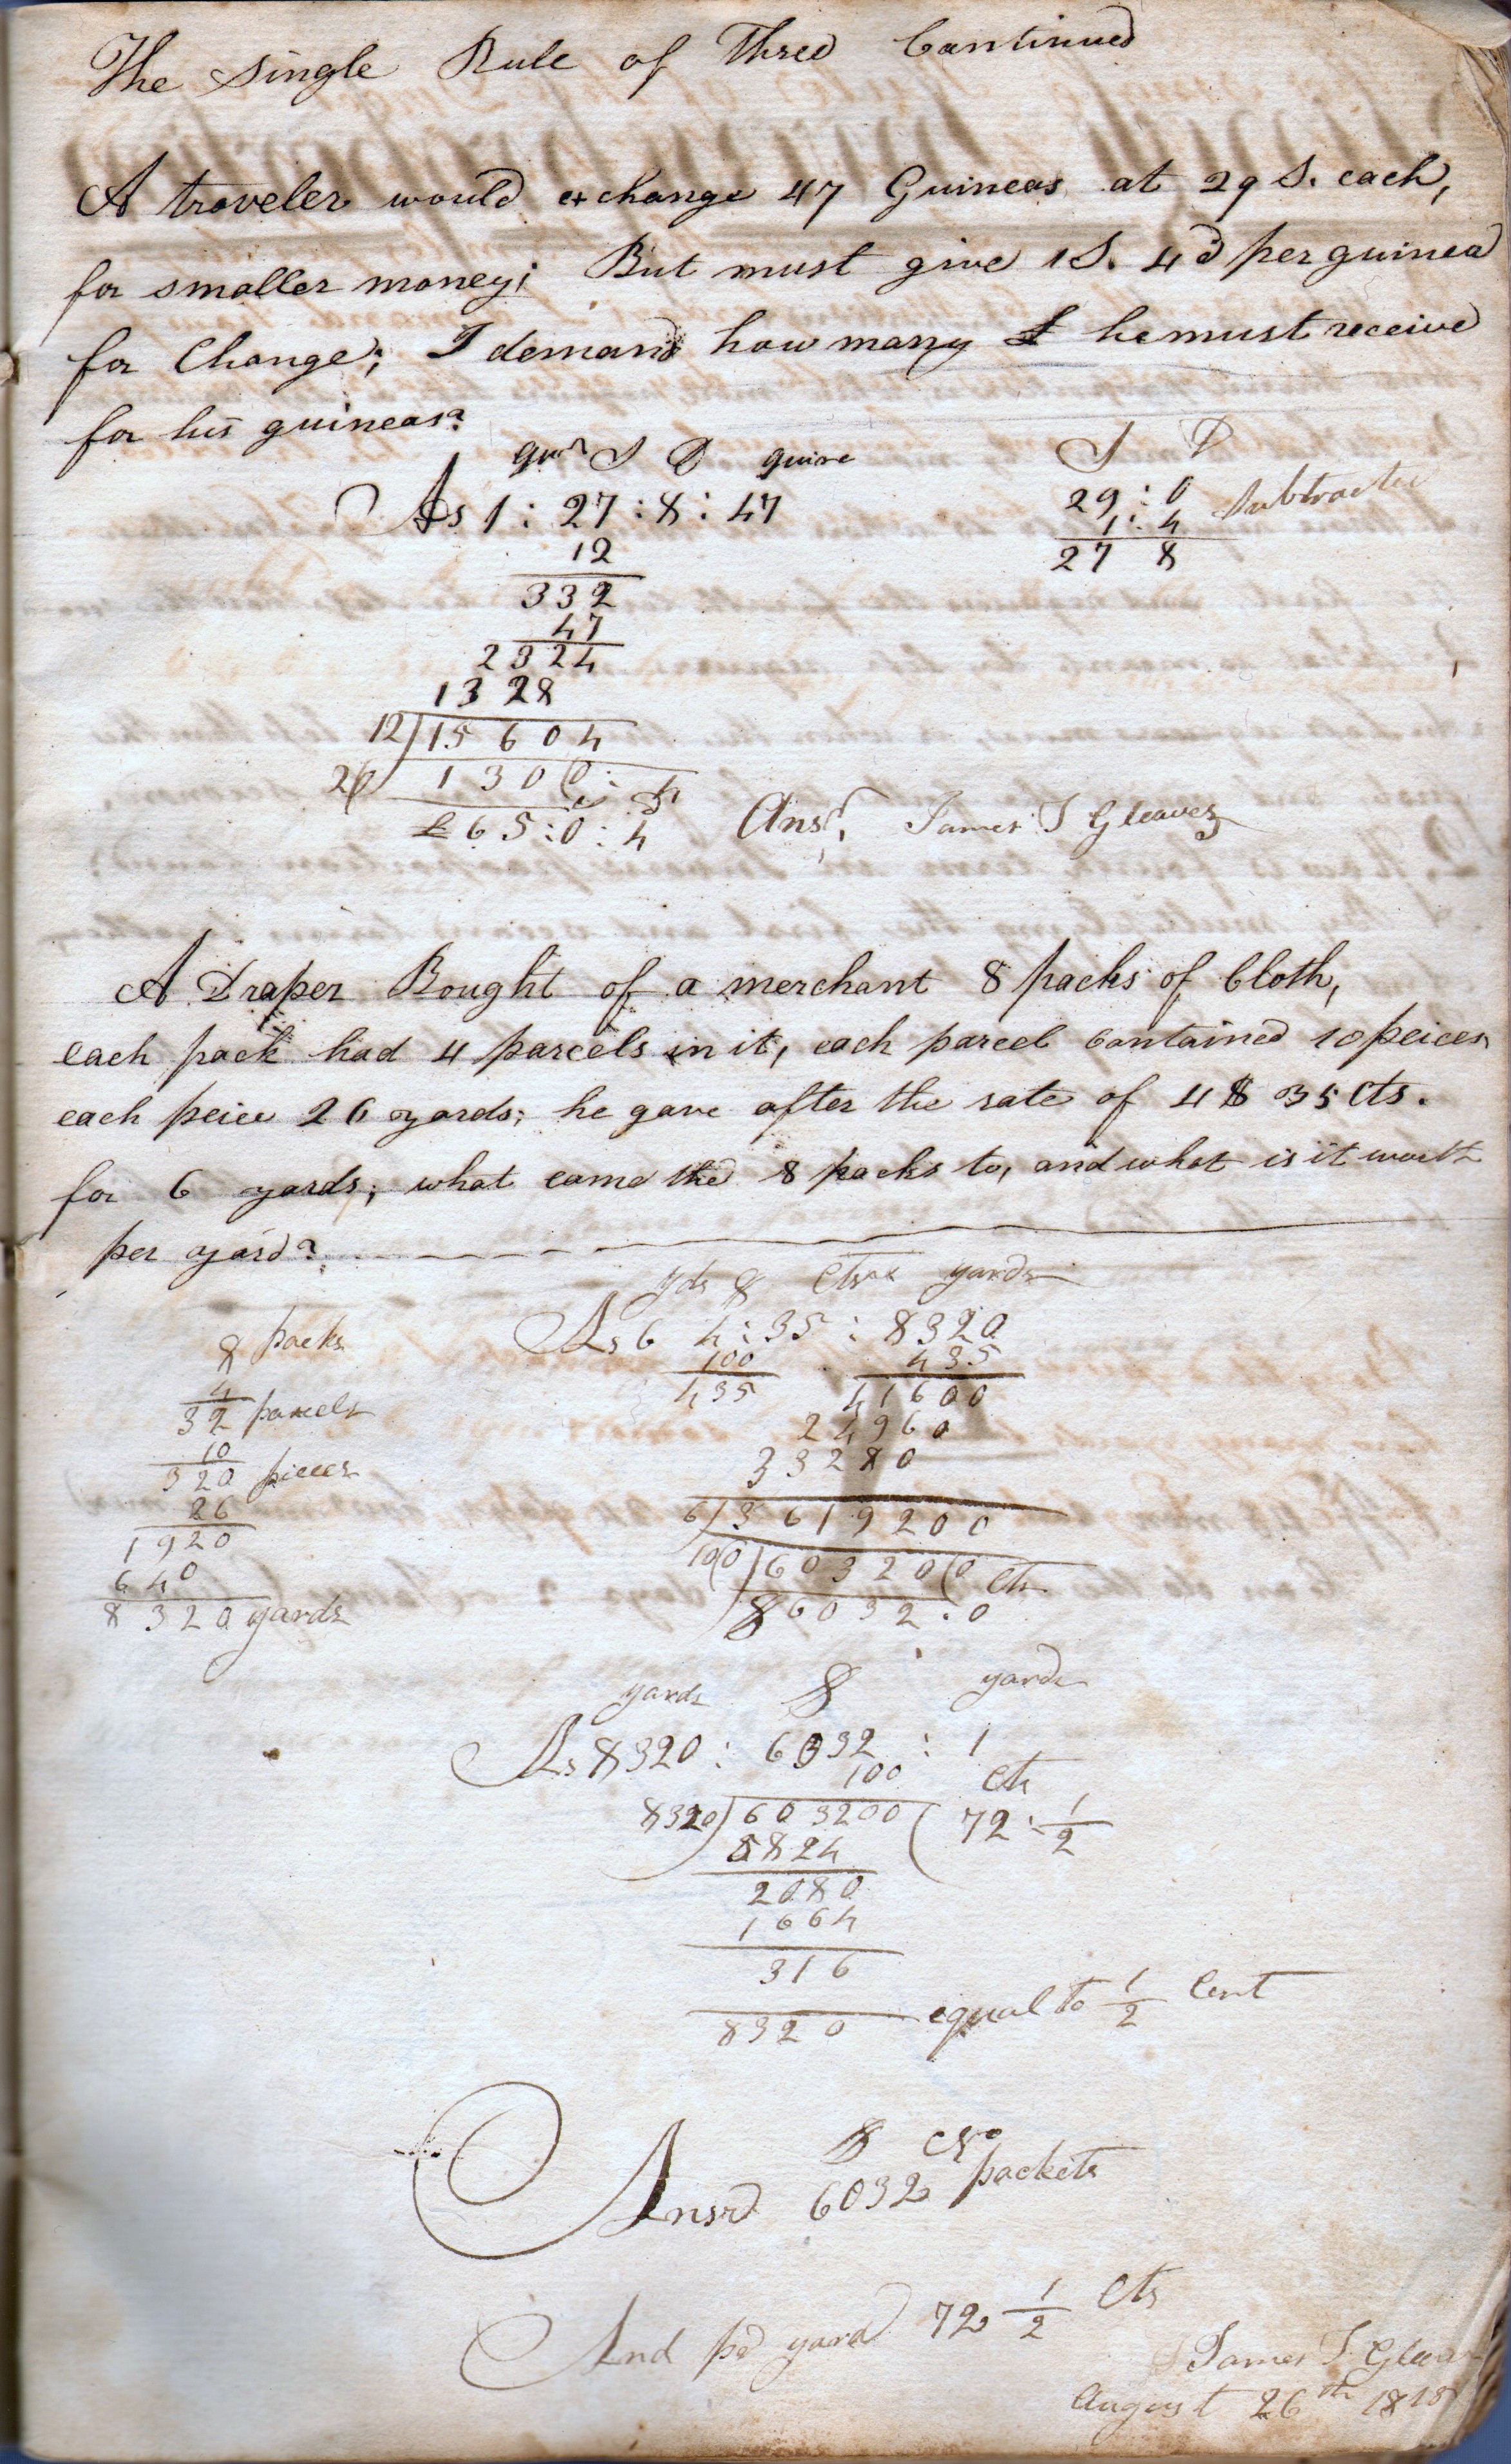 The Single Rule of Three Continued
A traveler would exchange 47 Guineas at 29 S. each,
for smaller money; But must give 1S. 4d per guinea
for Change; I demand how many £ he must receive
for his guineas?
S D guine
As 1 : 27 : 8 : 47
12
332
47
2324
1328
12) 15604
20 1300 : 4
£65 : 0 : 4 Ansr, James T Gleaves
S D
29 : 0 Subtracted
1 : 4
27 8
A Draper Bought of a merchant 8 packs of Cloth,
each pack had 4 parcels in it, each parcel Contained 10 peices
each peice 26 yards; he gave after the rate of 4 $ 35 Cts.
for 6 yards; what came the 8 packs to, and what is it worth
per yard?
8 packs
4
32 parcels
10
320 pieces
26
1920
640
8320 yards
yds $ Cts yards
As 6 4 : 35 : 8320
100 435
435 41600
24960
33280
6) 3619200
100) 603200 Cts
$6032 : 0
yards $ yards
As 8320 : 6032 : 1
100 Cts
8320) 603200 ( 72 : 1/2
5824
2080
1664
316
8320 equal to 1/2 Cent
$ Cts
Ansrd 6032 packets
And pr yard 72 1/2 Cts
James T Gleav
August 26th 1818